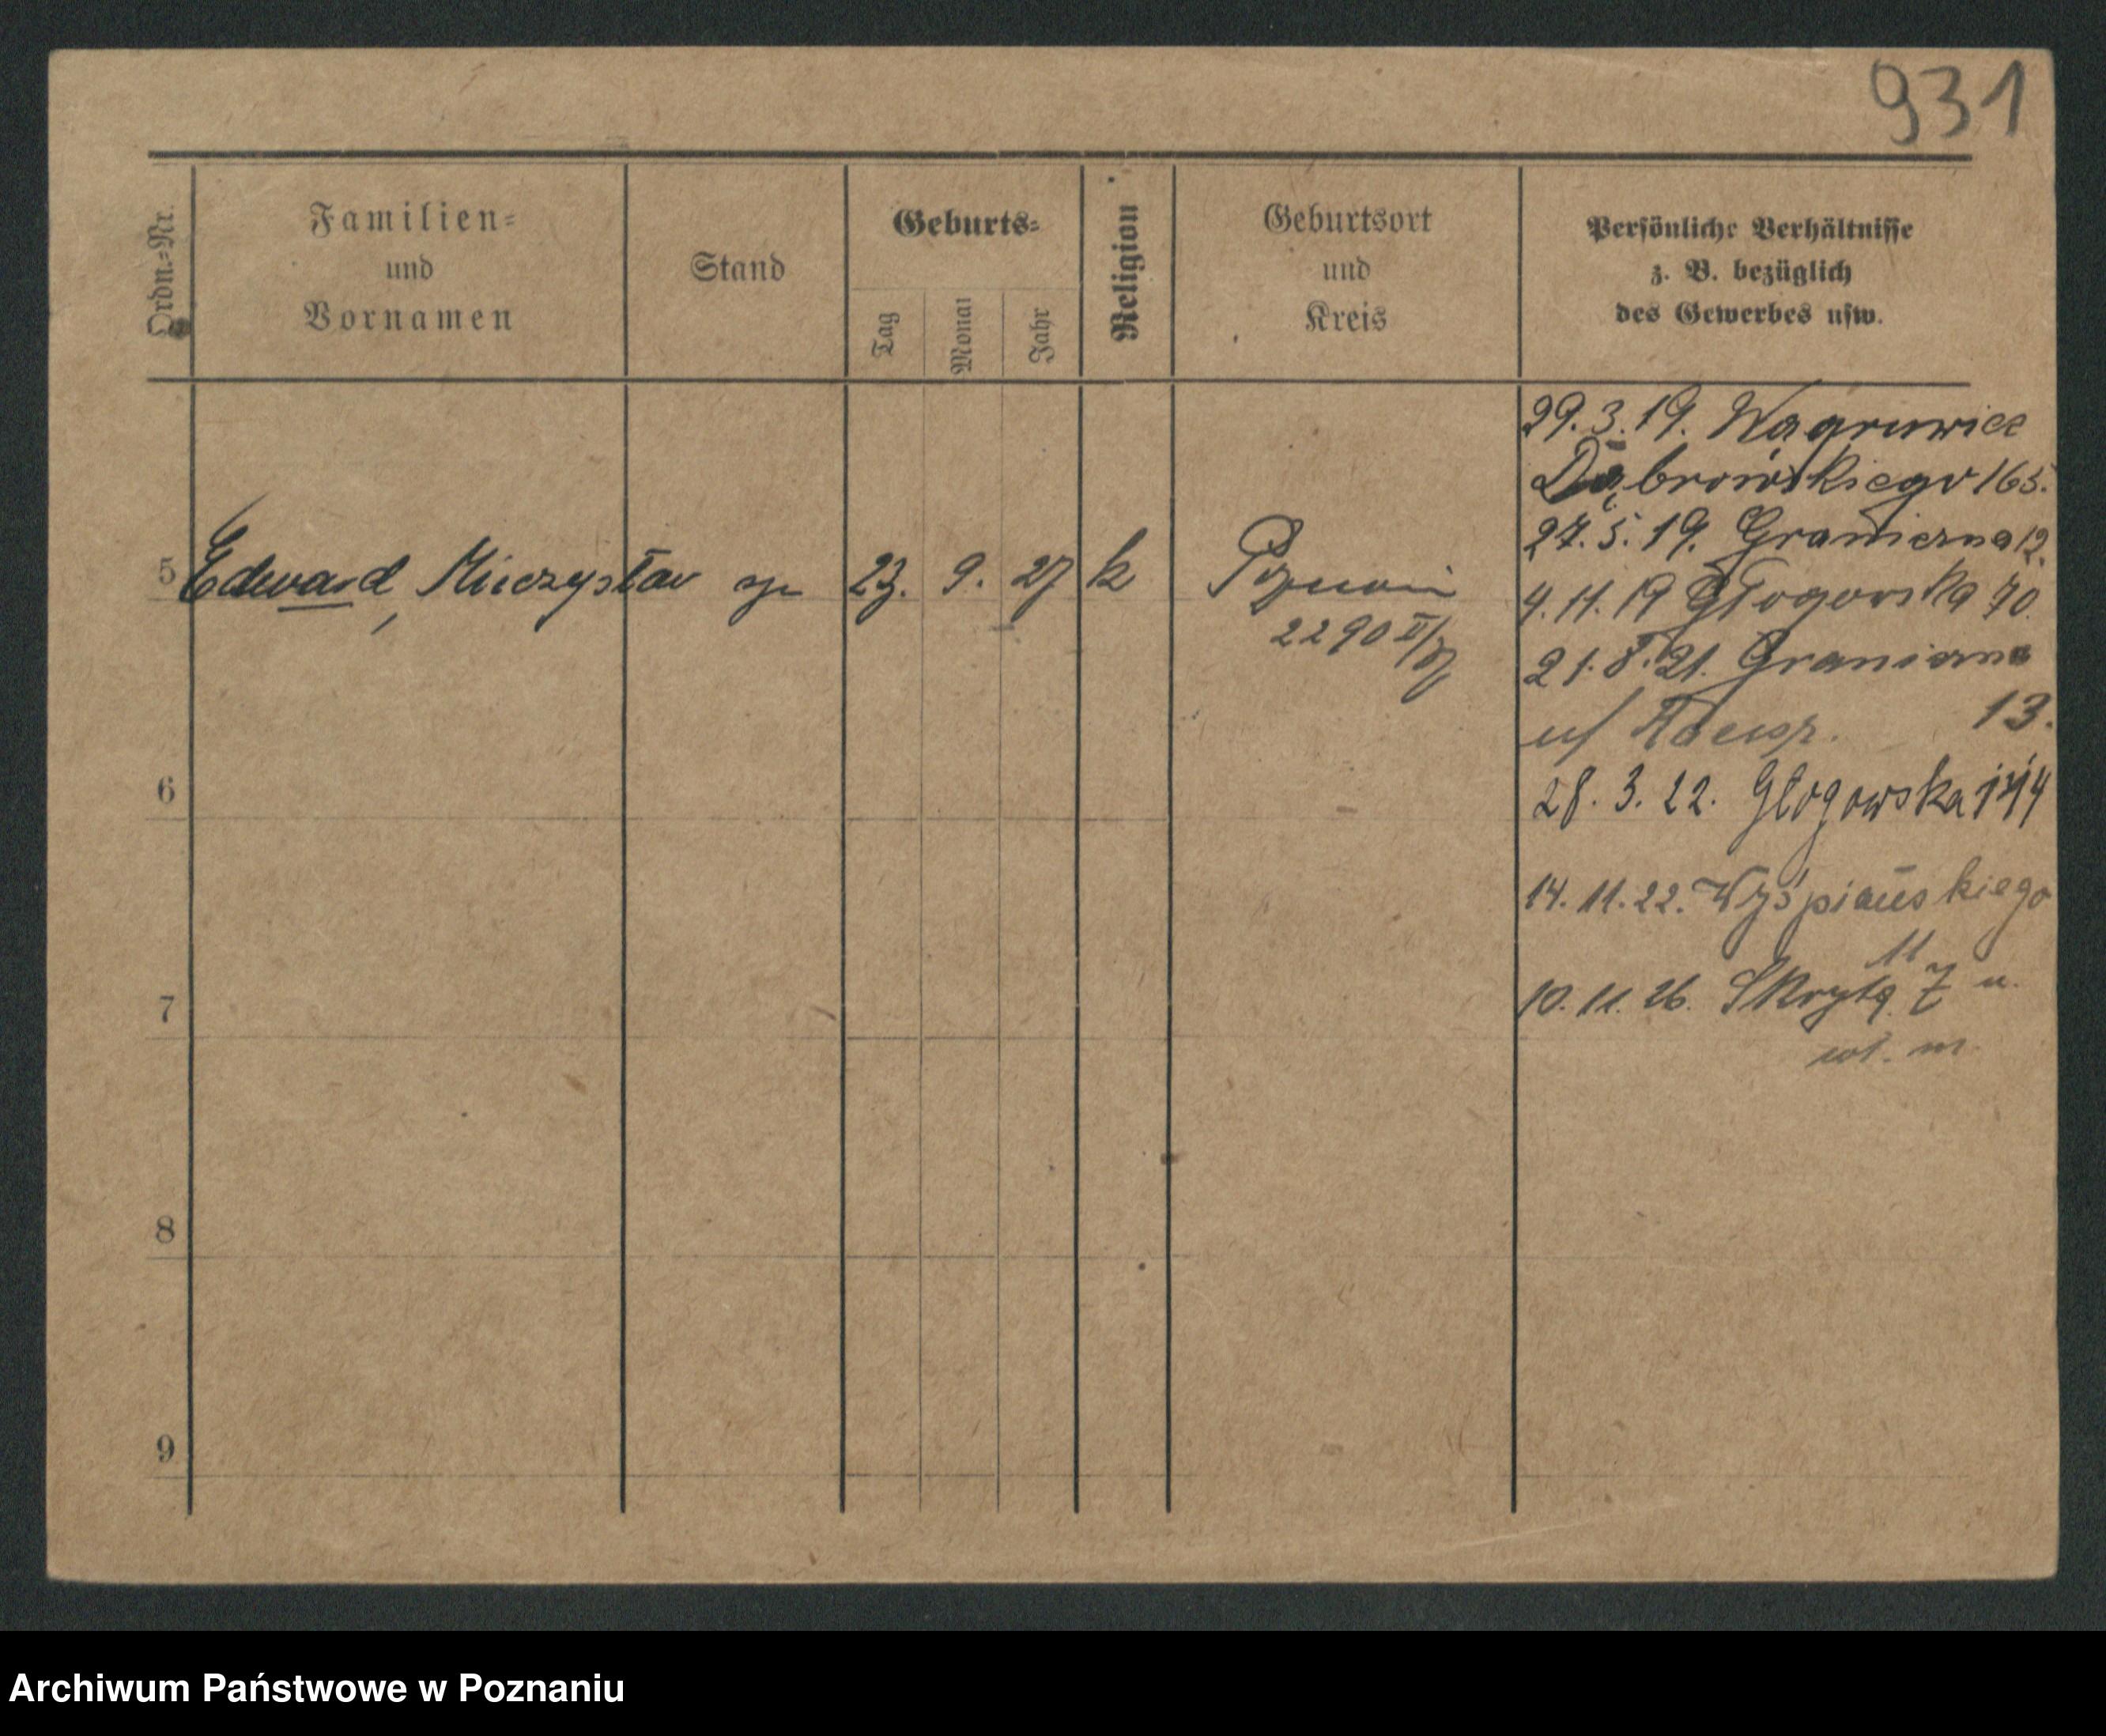 931
Ordn.-Nr.
Familien-
und
Vornamen
Stand
Geburts-
Tag
Monat
Jahr
Religion
Geburtsort
und
Kreis
Persönliche Verhältnisse
z. B. bezüglich
des Gewerbes usw.
29.3.19. Wągrowiec
Dąbrowskiego 165.
27.5.19. Graniczna 12.
5 Edward, Mieczysław 23. 9. 27 k Poznań
2290 II/27
4.11.19 Głogowska 70.
21.8.21. Graniczna
13.
6
28.3.22. Głogowska 144
14.11.22. Wyśpiańskiego
11
7
10.11.26. Skryta 7 u.
wł. m.
8
9
Archiwum Państwowe w Poznaniu